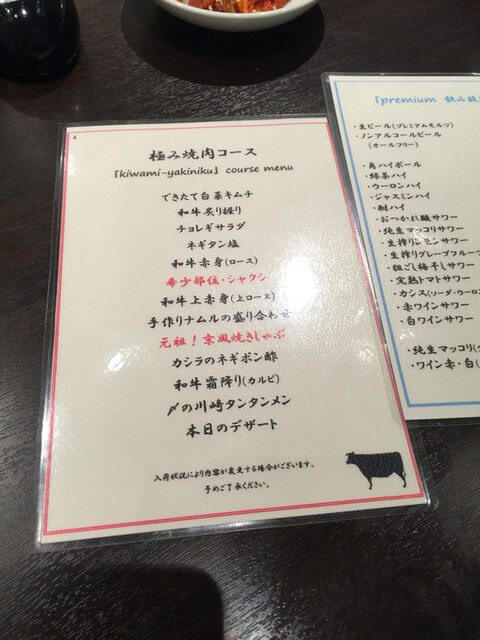 極み焼肉コース
『kiwami-yakiniku』 course menu
できたて白菜キムチ
和牛炙り握り
チョレギサラダ
ネギタン塩
和牛赤身(ロース)
希少部位・シャクシ
和牛上赤身(上ロース)
手作りナムルの盛り合わせ
元祖！京風焼きしゃぶ
カシラのネギポン酢
和牛霜降り(カルビ)
〆の川崎タンタンメン
本日のデザート
入荷状況により内容が変更する場合がございます。
予めご了承ください。
『premium 飲み放
・生ビール(プレミアムモルツ)
・ノンアルコールビール
(オールフリー)
・角ハイボール
・緑茶ハイ
・ウーロンハイ
・ジャスミンハイ
・酎ハイ
・おつかれ酸サワー
・純生マッコリサワー
・生搾りレモンサワー
・生搾りグレープフルーツ
・粗ごし梅干しサワー
・完熟トマトサワー
・カシス(ソーダ・ウーロン
・赤ワインサワー
・白ワインサワー
・純生マッコリ(
・ワイン赤・白(